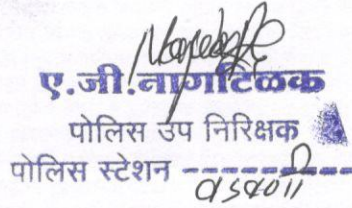 ए.जी.नागटिळक
पोलिस उप निरिक्षक
पोलिस स्टेशन